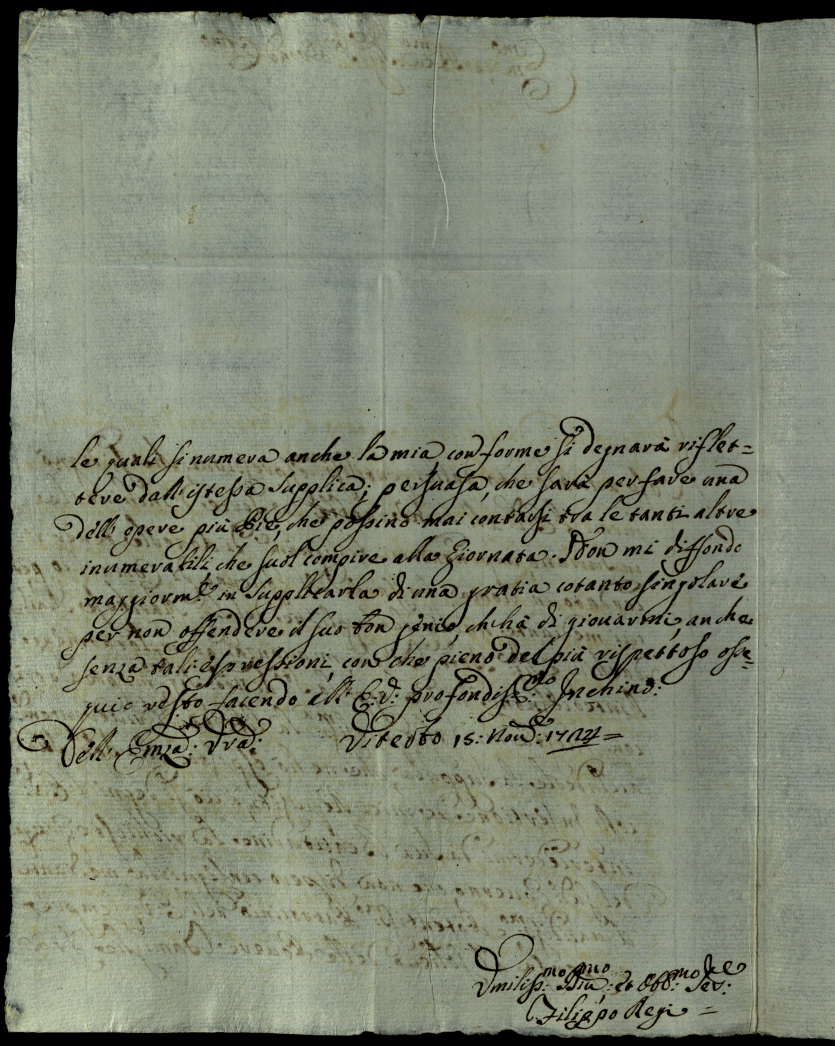 le quali si numera anche la mia, conforme si degnarà riflet=
tere dall'istessa supplica; persuasa, che sarà per fare una
dell'opere più Pie, che possino mai contarsi tra le tanti altre
inumerabili che suol compire alla Giornata. Non mi diffondo
maggiorm:te in supplicarla di una gratia cotanto singolare,
per non offendere il suo bon genio, ch'hà di giovarmi, anche
senza tali espressioni, con che pieno del più rispettoso osse=
quio resto facendo all' E: V: profondiss:mo Inchino:
Dell' Emza: Vra: Viterbo 15: Nov:e 1724=
Vmiliss:mo Div:mo et Obb:mo Ser:re
Filippo Regi =